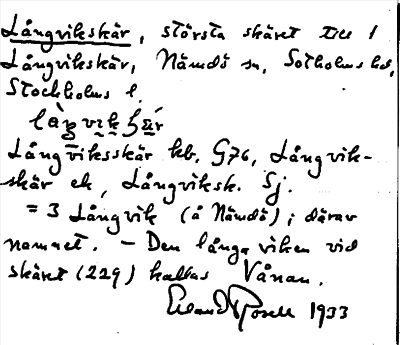 Långvikskär, största skäret till 1
Långvikskär, Nämdö sn, Sotholms hd,
Stockholms l.
Långviksskär kb, G76, Långvik-
skär ek, Långviksk. Sj.
= 3 Långvik (å Nämdö); därav
namnet. — Den långa viken vid
skäret (229) kallas Vånan.
Erland Rosell 1933